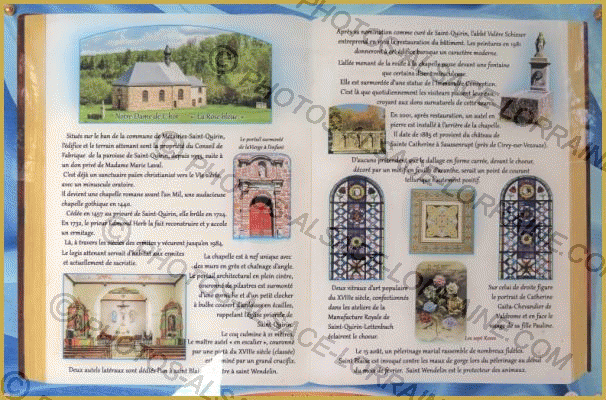 Notre Dame de l'Hor "La Rose bleue"
Située sur le ban de la commune de Métairies-Saint-Quirin,
l'édifice et le terrain attenant sont la propriété du Conseil de
Fabrique de la paroisse de Saint-Quirin, depuis 1953, suite à
un don privé de Madame Marie Laval.
C'est déjà un sanctuaire païen christianisé vers le VIe siècle,
avec un minuscule oratoire.
Il devient une chapelle romane avant l'an Mil, une audacieuse
chapelle gothique en 1440.
Cédée en 1457 au prieuré de Saint-Quirin, elle brûle en 1724.
En 1732, le prieur Edmond Herb la fait reconstruire et y accole
un ermitage.
Là, à travers les siècles des ermites y vécurent jusqu'en 1984.
Le logis attenant servait d'habitat aux ermites
et actuellement de sacristie.
Le portail surmonté
de la Vierge à l'enfant
La chapelle est à nef unique avec
des murs en grès et chaînage d'angle.
Le portail architectural en plein cintre,
encadré de pilastres est surmonté
d'une niche et d'un petit clocher
à bulbe couvert d'ardoises en écailles,
rappelant l'église priorale de
Saint-Quirin.
Le coq culmine à 11 mètres.
Le maître autel « en escalier », couronné
par une pietà du XVIIIe siècle (classée)
est dominé par un grand crucifix.
Deux autels latéraux sont dédiés l'un à saint Blaise, l'autre à saint Wendelin.
Après sa nomination comme curé de Saint-Quirin, l'abbé Valère Schieser
entreprend en 1979 la restauration du bâtiment. Les peintures en 1981
donneront à cet édifice baroque un caractère moderne.
L'allée menant de la route à la chapelle passe devant une fontaine
que certains disent miraculeuse.
Elle est surmontée d'une statue de l'Immaculée Conception.
C'est là que quotidiennement les visiteurs puisent leur eau,
croyant aux dons surnaturels de cette source.
En 2001, après restauration, un autel en
pierre est installé à l'arrière de la chapelle.
Il date de 1885 et provient du château de
Sainte Catherine à Saussenrupt (près de Cirey-sur-Vezouze).
D'aucuns prétendent que le dallage en forme carrée, devant le choeur,
décoré par un motif en feuille d'acanthe, serait un point de courant
tellurique hautement positif.
Deux vitraux d'art populaire
du XVIIIe siècle, confectionnés
dans les ateliers de la
Manufacture Royale de
Saint-Quirin-Lettenbach
éclairent le choeur.
Les sept Roses
Sur celui de droite figure
le portrait de Catherine
Gaïta-Chevandier de
Valdrome et en face le
visage de sa fille Pauline.
Le 15 août, un pèlerinage marial rassemble de nombreux fidèles.
Saint Blaise est invoqué contre les maux de gorge lors du pèlerinage au début
du mois de février. Saint Wendelin est le protecteur des animaux.
© PHOTOS-ALSACE-LORRAINE.COM